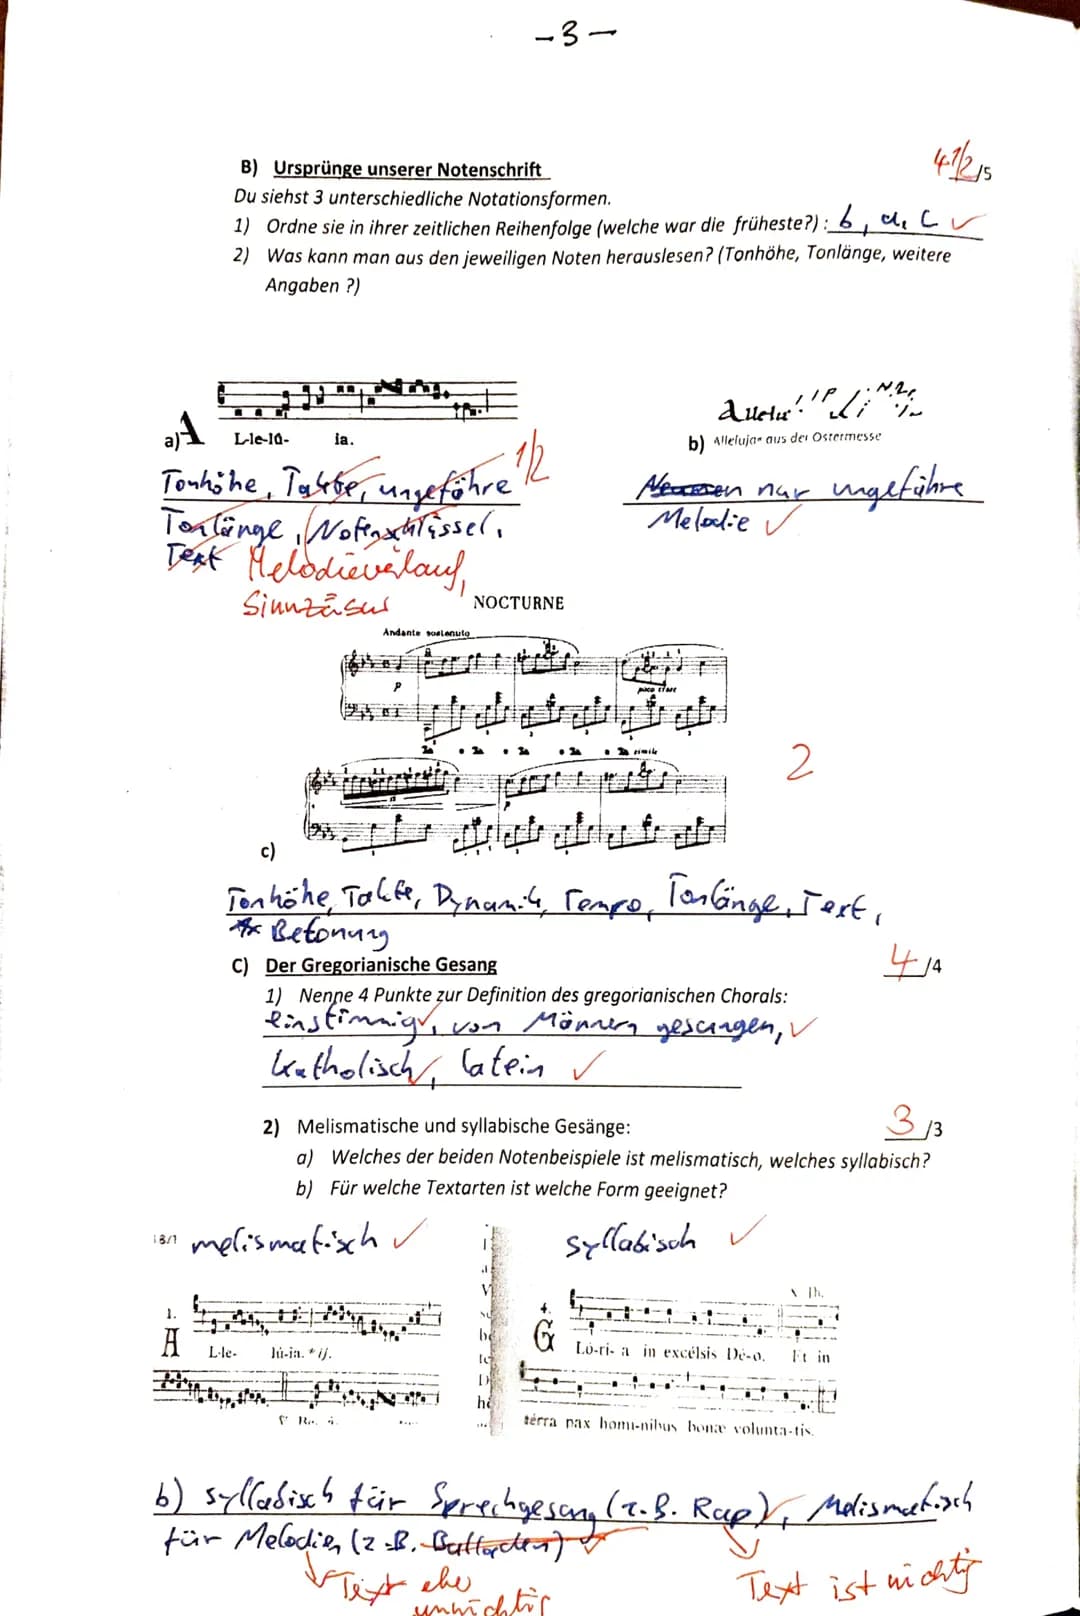 -3-
B) Ursprünge unserer Notenschrift
4 1/2 /5
Du siehst 3 unterschiedliche Notationsformen.
1) Ordne sie in ihrer zeitlichen Reihenfolge (welche war die früheste?): b, a, c ✓
2) Was kann man aus den jeweiligen Noten herauslesen? (Tonhöhe, Tonlänge, weitere
Angaben ?)
a) A L-le-lú- ia.
Tonhöhe, Takte, ungefähre 1/2
Tonlänge, Notenschlüssel,
Text Melodieverlauf,
Sinnzäsur
Allelu
b) Alleluja- aus der Ostermesse
nur ungefähre
Melodie ✓
NOCTURNE
Andante sostenuto
P
poco cresc
simile
P
2
c)
Tonhöhe, Takte, Dynamik, Tempo, Tonlänge, Text,
Betonung
C) Der Gregorianische Gesang
4 /4
1) Nenne 4 Punkte zur Definition des gregorianischen Chorals:
einstimmig ✓, von Männern gesungen, ✓
katholisch ✓, latein ✓
2) Melismatische und syllabische Gesänge:
3 /3
a) Welches der beiden Notenbeispiele ist melismatisch, welches syllabisch?
b) Für welche Textarten ist welche Form geeignet?
melismatisch ✓
syllabisch ✓
1.
A L-le- lú-ia. * ij.
4.
G Ló-ri- a in excélsis Dé-o. Et in
térra pax homí-nibus bonæ voluntá-tis.
b) syllabisch für Sprechgesang (z.B. Rap) ✓, Melismatisch
für Melodien (z.B. Balladen) ✓
Text eher
unwichtig
Text ist wichtig